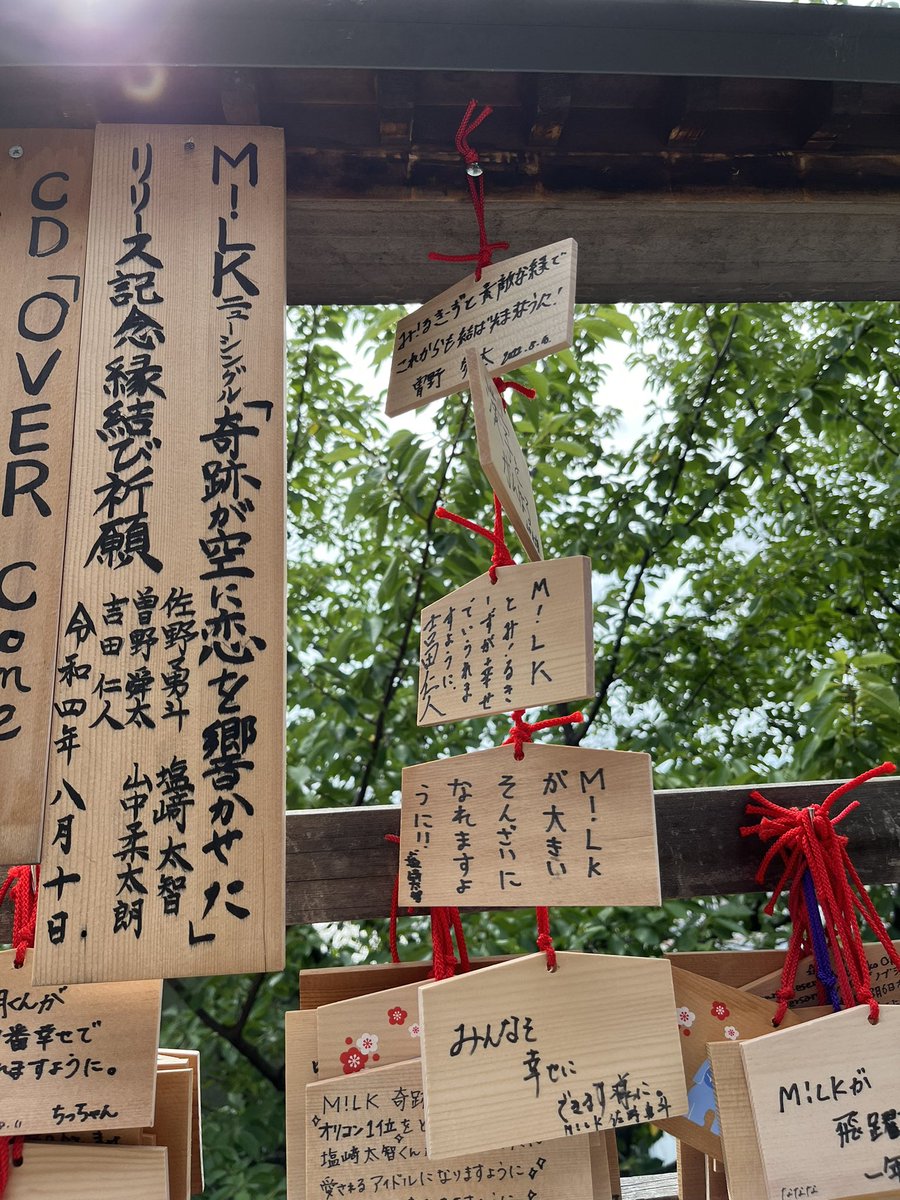 CD「OVER Come
M!LK ニューシングル「奇跡が空に恋を響かせた」
リリース記念縁結び祈願
佐野勇斗 塩﨑太智
曽野舜太 山中柔太朗
吉田仁人
令和四年八月十日.
み!るきーずと素敵な縁で
これからも結ばれますように!
曽野 舜太 2022.8.6
M!LK
とみ!るき
ーずが幸せ
でいられま
すように。
吉田仁人
M!LK
が大きい
そんざいに
なれますよ
うに!!
塩﨑太智
みんなぞ
幸せに
できます様に。
M!LK 佐野勇斗
くんが
番幸せで
れますように。
ちっちゃん
M!LK 奇跡
オリコン1位をと
塩﨑太智くん
愛されるアイドルになりますように
M!LKが
飛躍
ななな